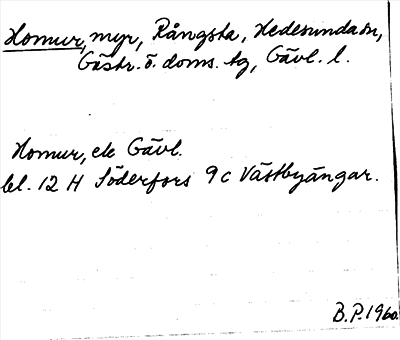 Homur, myr, Rångsta, Hedesunda sn,
Gästr. ö. doms. tg, Gävl. l.
Homur, ek Gävl.
bl. 12 H Söderfors 9 c Västbyängar.
B.P. 1960.